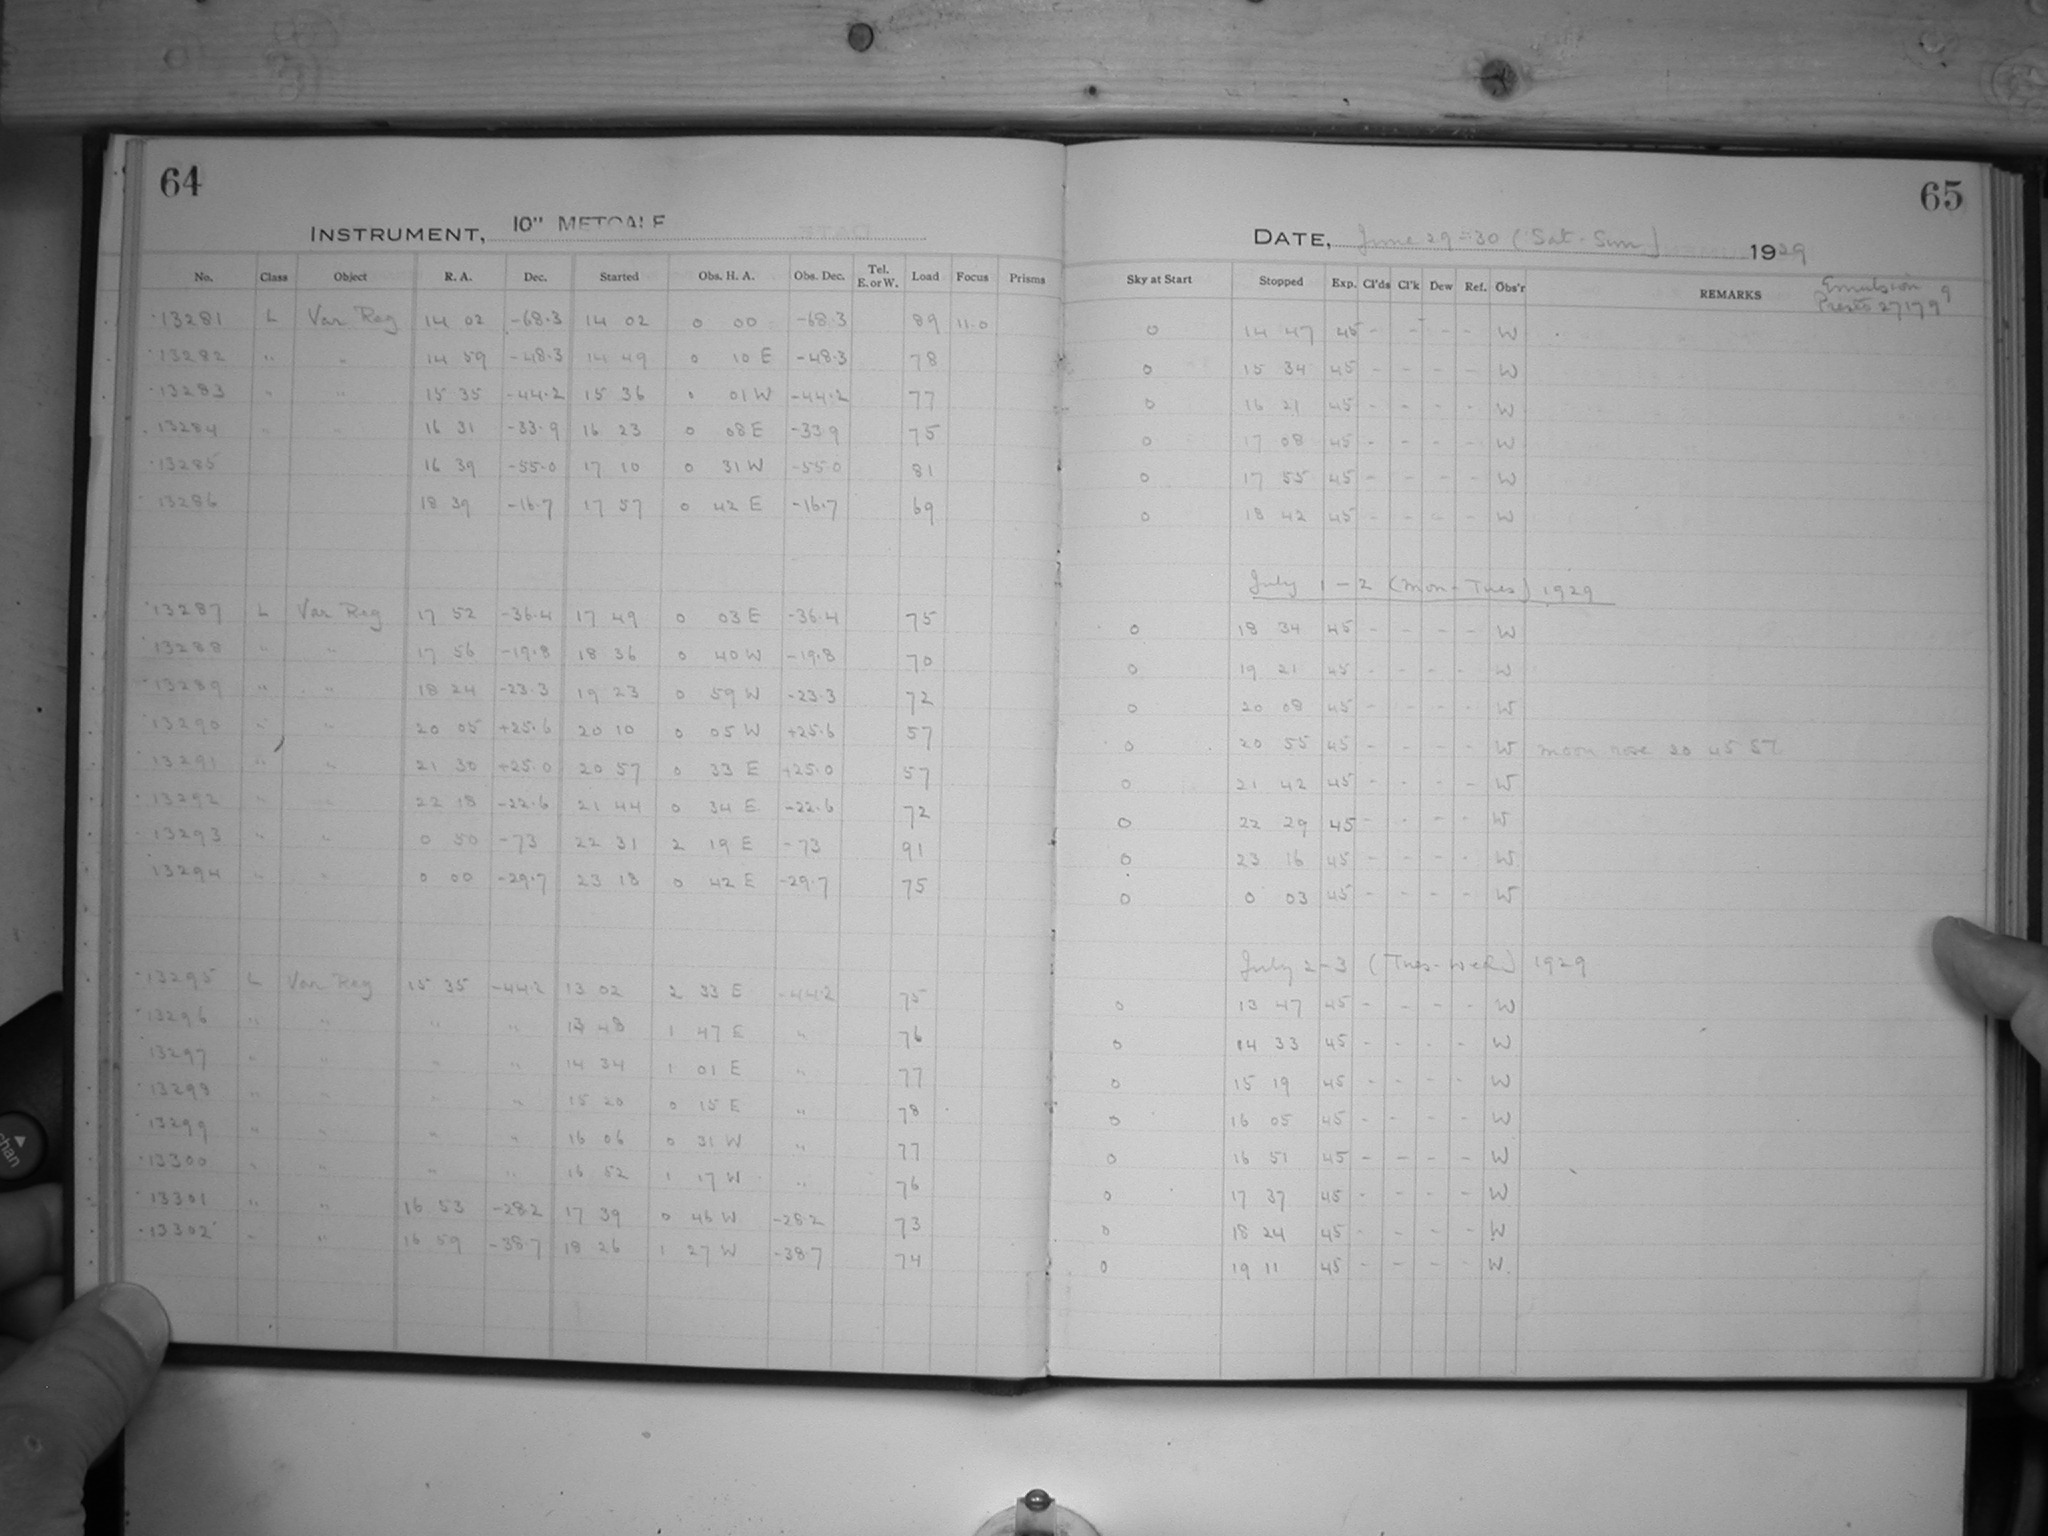 64
INSTRUMENT, 10" METCALF
No. Class Object R. A. Dec. Started Obs. H. A. Obs. Dec. Tel. E. or W. Load Focus Prisms
13281 L Var Reg 14 02 -68.3 14 02 0 00 -68.3 89 11.0
13282 " " 14 59 -48.3 14 49 0 10 E -48.3 78
13283 " " 15 35 -44.2 15 36 0 01 W -44.2 77
13284 " " 16 31 -33.9 16 23 0 08 E -33.9 75
13285 16 39 -55.0 17 10 0 31 W -55.0 81
13286 18 39 -16.7 17 57 0 42 E -16.7 69
13287 L Var Reg 17 52 -36.4 17 49 0 03 E -36.4 75
13288 " " 17 56 -19.8 18 36 0 40 W -19.8 70
13289 " " 18 24 -23.3 19 23 0 59 W -23.3 72
13290 " " 20 05 +25.6 20 10 0 05 W +25.6 57
13291 " " 21 30 +25.0 20 57 0 33 E +25.0 57
13292 " " 22 18 -22.6 21 44 0 34 E -22.6 72
13293 " " 0 50 -73 22 31 2 19 E -73 91
13294 " " 0 00 -29.7 23 18 0 42 E -29.7 75
13295 L Var Reg 15 35 -44.2 13 02 2 33 E -44.2 75
13296 " " " " 13 48 1 47 E " 76
13297 " " " " 14 34 1 01 E " 77
13298 " " " " 15 20 0 15 E " 78
13299 " " " " 16 06 0 31 W " 77
13300 " " " " 16 52 1 17 W " 76
13301 " " 16 53 -28.2 17 39 0 46 W -28.2 73
13302 " " 16 59 -38.7 18 26 1 27 W -38.7 74
65
DATE, June 29-30 (Sat-Sun) 1929
Sky at Start Stopped Exp. Cl'ds Cl'k Dew Ref. Obs'r REMARKS
Emulsion
Presto 27179
0 14 47 45 - - - - W
0 15 34 45 - - - - W
0 16 21 45 - - - - W
0 17 08 45 - - - - W
0 17 55 45 - - - - W
0 18 42 45 - - - - W
July 1-2 (Mon-Tues) 1929
0 18 34 45 - - - - W
0 19 21 45 - - - - W
0 20 08 45 - - - - W
0 20 55 45 - - - - W moon rose 20 45 ST
0 21 42 45 - - - - W
0 22 29 45 - - - - W
0 23 16 45 - - - - W
0 0 03 45 - - - - W
July 2-3 (Tues-Wed) 1929
0 13 47 45 - - - - W
0 14 33 45 - - - - W
0 15 19 45 - - - - W
0 16 05 45 - - - - W
0 16 51 45 - - - - W
0 17 37 45 - - - - W
0 18 24 45 - - - - W
0 19 11 45 - - - - W.